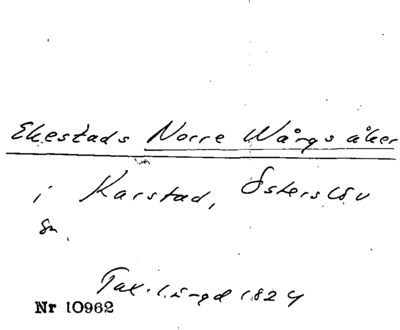 Ekestads Norre Wångs åker
i Karstad, Österslöv
sn.
Tax.längd 1824
Nr 10962